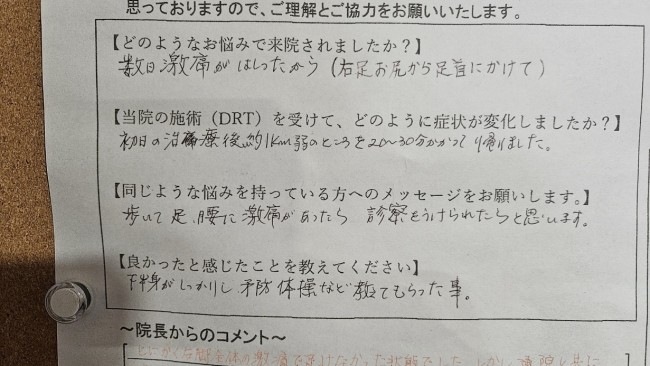 思っておりますので、ご理解とご協力をお願いいたします。
【どのようなお悩みで来院されましたか？】
数日激痛がはしったから（右足お尻から足首にかけて）
【当院の施術（DRT）を受けて、どのように症状が変化しましたか？】
初日の治療後、約1Km弱のところを20〜30分かかって帰りました。
【同じような悩みを持っている方へのメッセージをお願いします。】
歩いて足、腰に激痛があったら 診察をうけられたらと思います。
【良かったと感じたことを教えてください】
下半身がしっかりし予防体操など教えてもらった事。
〜院長からのコメント〜
とにかく右足全体の激痛で歩けなかった状態でした。しかし通院と共に